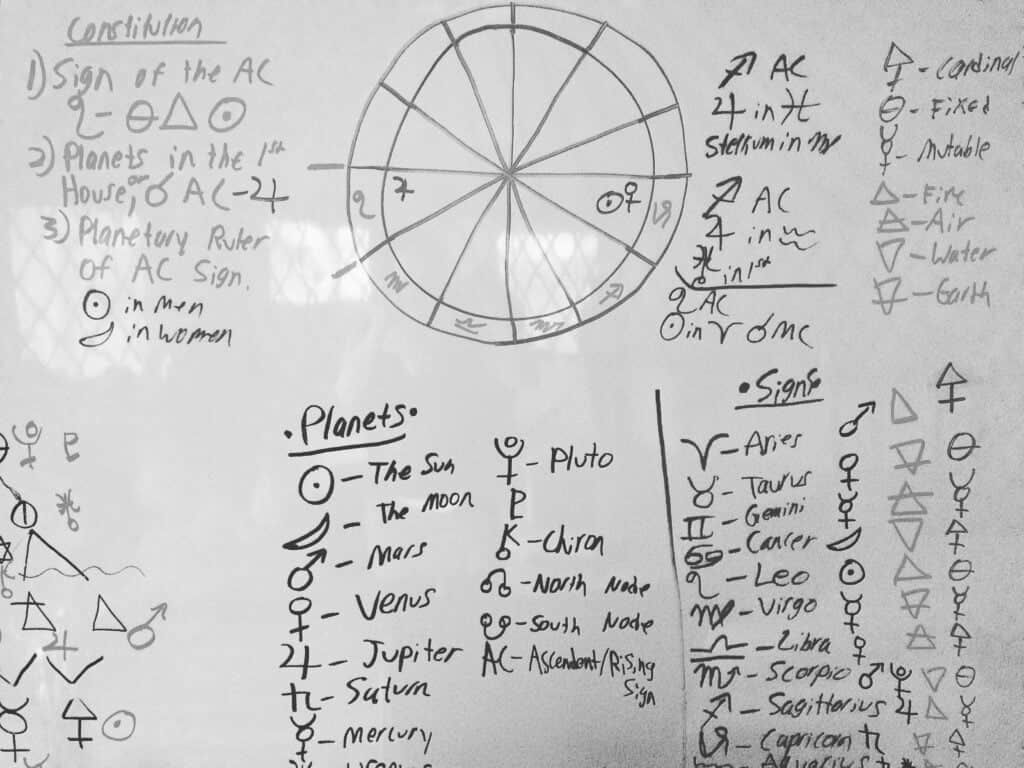 Constitution
1) Sign of the AC
♌ - 🜔 △ ☉
2) Planets in the 1st
House, or ☌ AC - ♃
3) Planetary Ruler
of AC Sign.
☉ in Men
☽ in women
♌ ♃ ☉ ♀ ♑
♍ ♎ ♏ ♐
♐ AC
♃ in ♓
Stellium in ♏
♐ AC
♃ in ♒
in 1st
♌ AC
☉ in ♈ ☌ MC
- Cardinal
- Fixed
☿ - Mutable
△ - Fire
🜁 - Air
▽ - Water
🜃 - Earth
• Planets •
☉ - The Sun
☽ - The Moon
♂ - Mars
♀ - Venus
♃ - Jupiter
♄ - Saturn
☿ - Mercury
- Pluto
♇
⚷ - Chiron
☊ - North Node
☋ - South Node
AC - Ascendent/Rising
Sign
• Signs •
♈ - Aries ♂ △
♉ - Taurus ♀ 🜃
♊ - Gemini ☿ 🜁
♋ - Cancer ☽ ▽
♌ - Leo ☉ △
♍ - Virgo ☿ 🜃
♎ - Libra ♀ 🜁
♏ - Scorpio ♂ ▽
♐ - Sagittarius ♃ △
♑ - Capricorn ♄ 🜃